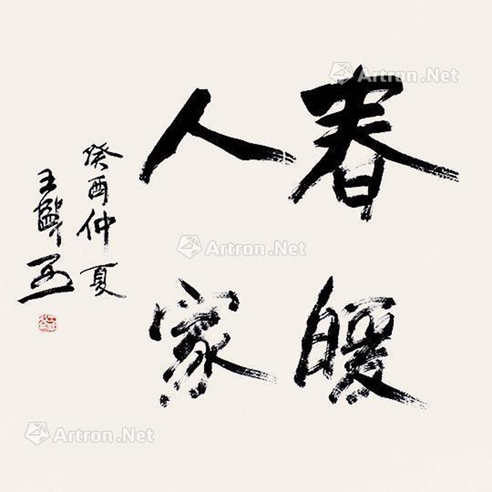 春暖
人家
癸酉仲夏
王
Artron.Net
Artron.Net
Artron.Net